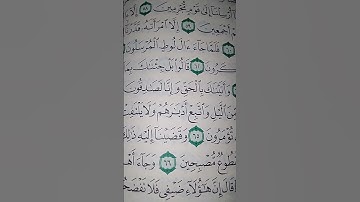 أُرْسِلْنَا إِلَىٰ قَوْمٍ مُّجْرِمِينَ ٥٨ إِلَّا
أَجْمَعِينَ ٥٩ إِلَّا ٱمْرَأَتَهُۥ قَدَّرْنَا
فَلَمَّا جَآءَ ءَالَ لُوطٍ ٱلْمُرْسَلُونَ
كَرُونَ ٦٢ قَالُوا۟ بَلْ جِئْنَٰكَ بِمَا
وَأَتَيْنَٰكَ بِٱلْحَقِّ وَإِنَّا لَصَٰدِقُونَ
مِّنَ ٱلَّيْلِ وَٱتَّبِعْ أَدْبَٰرَهُمْ وَلَا يَلْتَفِتْ
تُؤْمَرُونَ ٦٥ وَقَضَيْنَآ إِلَيْهِ ذَٰلِكَ
طُوعٌ مُّصْبِحِينَ ٦٦ وَجَآءَ أَهْ
قَالَ إِنَّ هَٰٓؤُلَآءِ ضَيْفِى فَلَا تَفْضَحُ